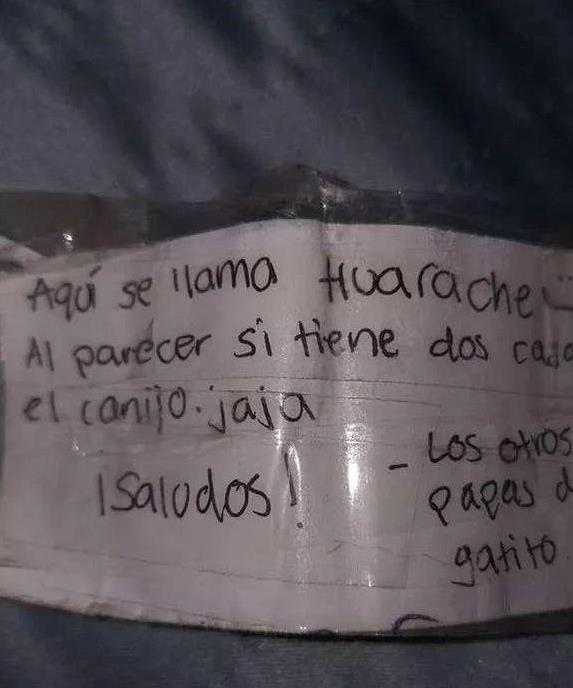 Aquí se llama Huarache
Al parecer si tiene dos
el canijo. jaja
¡Saludos!
- Los otros
papas d
gatito